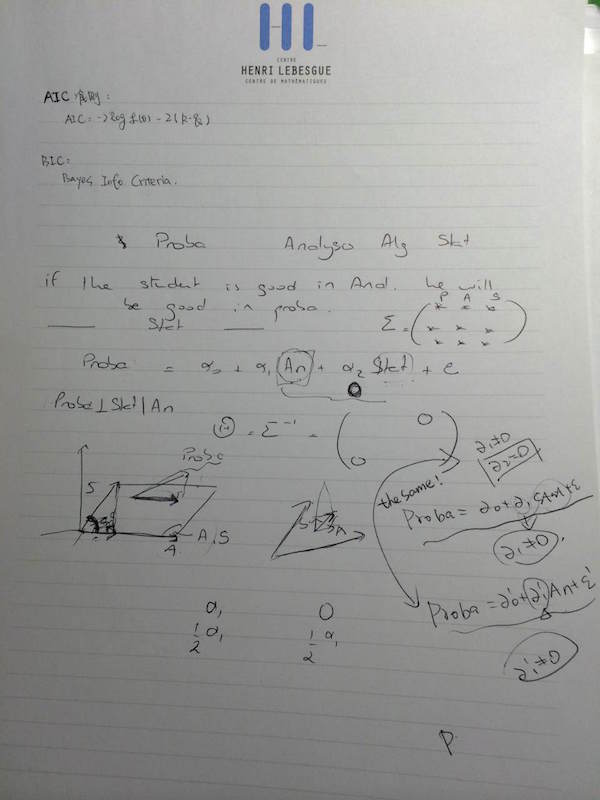 CENTRE
HENRI LEBESGUE
CENTRE DE MATHÉMATIQUES
AIC 准则:
AIC = -2 log
BIC:
Bayes Info Criteria.
Proba Analyso Alg Stat
if the student is good in Anal. he will
be good in proba.
Stat
P A S
Σ = ( )
Proba = α₀ + α₁ An + α₂ Stat + ε
0
Proba ⊥ Stat | An
Θ = Σ⁻¹ = ( 0
0 )
∂₁≠0
∂₂=0
Proba
S
A
A, S
S
A
the same!
Proba = ∂₀+∂₁ +ε
∂₁≠0.
Proba = ∂₀'+∂₁'An+ε'
∂₁'≠0
α₁ 0
½ α₁ ½ α₁
P